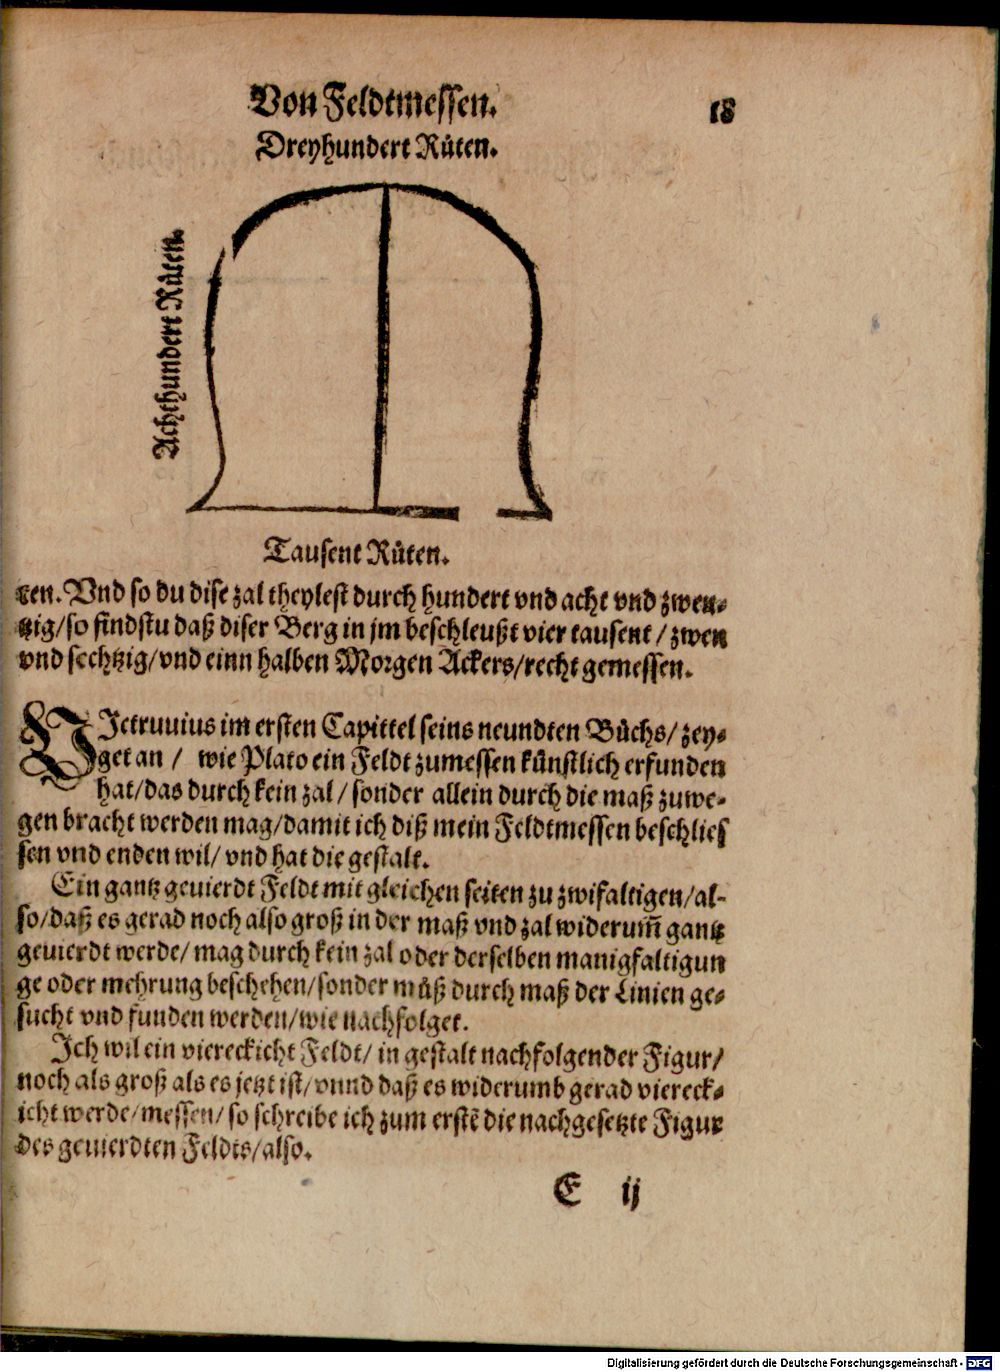 Von Feldtmessen.
18
Dreyhundert Růten.
Achthundert Růten.
Tausent Růten.
ten. Vnd so du dise zal theylest durch hundert vnd acht vnd zwen⸗
tzig/so findstu daß diser Berg in jm beschleußt vier tausent / zwen
vnd sechtzig/vnd einn halben Morgen Ackers/recht gemessen.
VJctruuius im ersten Capittel seins neundten Bůchs/ zey⸗
get an / wie Plato ein Feldt zumessen künstlich erfunden
hat/das durch kein zal / sonder allein durch die maß zuwe⸗
gen bracht werden mag/damit ich diß mein Feldtmessen beschlies
sen vnd enden wil/ vnd hat die gestalt.
Ein gantz geuierdt Feldt mit gleichen seiten zu zwifaltigen/al⸗
so/daß es gerad noch also groß in der maß vnd zal widerum̃ gantz
geuierdt werde/ mag durch kein zal oder derselben manigfaltigun
ge oder mehrung beschehen/sonder můß durch maß der Linien ge⸗
sucht vnd funden werden/wie nachfolget.
Jch wil ein viereckicht Feldt/ in gestalt nachfolgender Figur/
noch als groß als es jetzt ist/vnnd daß es widerumb gerad viereck⸗
icht werde/messen/ so schreibe ich zum erstẽ die nachgesetzte Figur
des geuierdten Feldts/also.
E ij
Digitalisierung gefördert durch die Deutsche Forschungsgemeinschaft - DFG